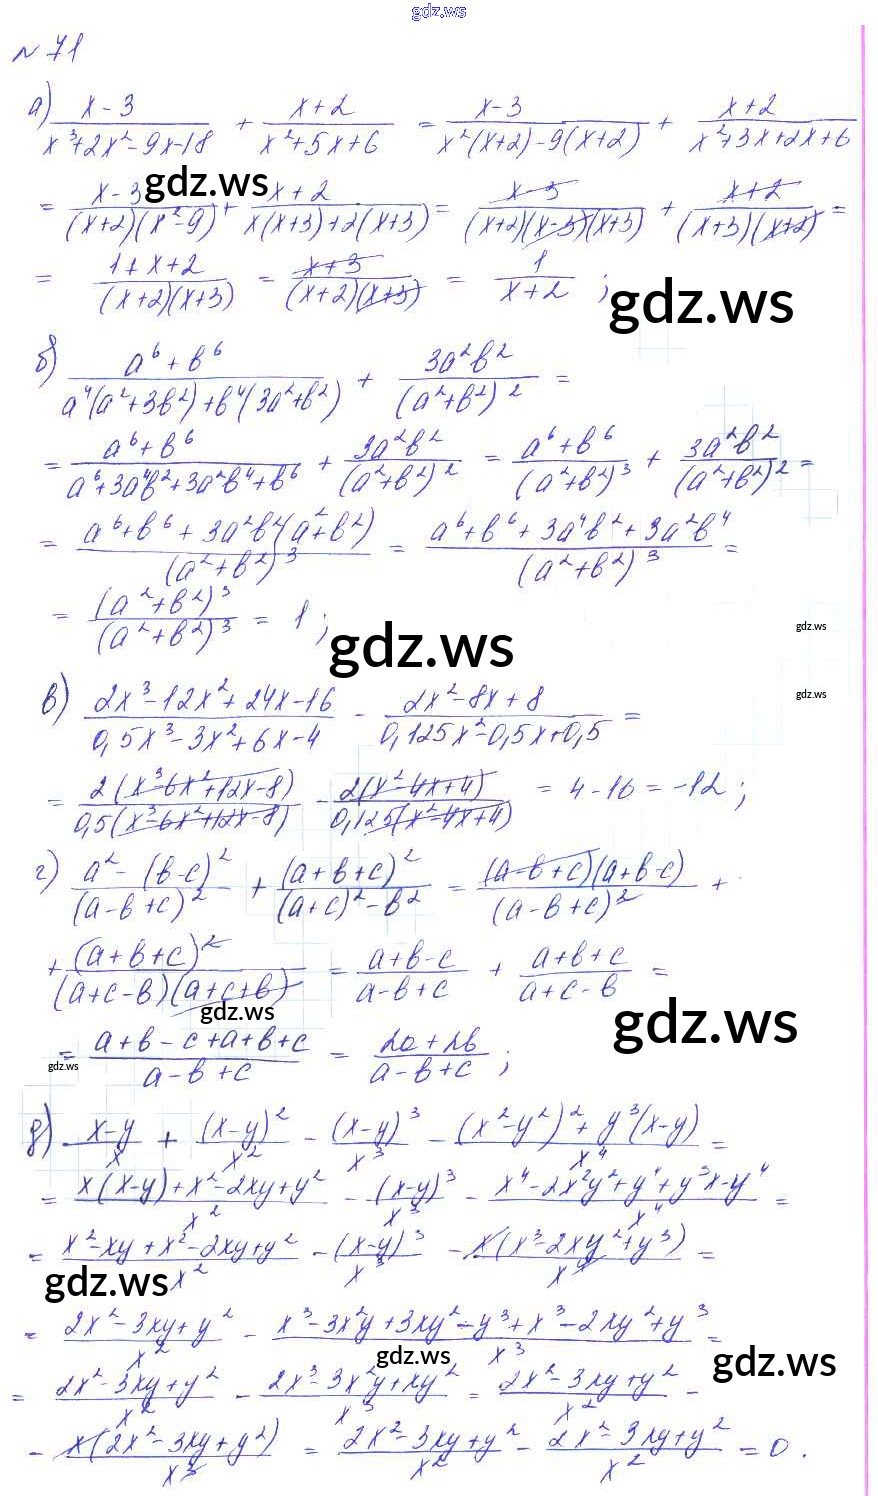 gdz.ws
№ 71
а) (x-3)/(x³+2x²-9x-18) + (x+2)/(x²+5x+6) = (x-3)/(x²(x+2)-9(x+2)) + (x+2)/(x²+3x+2x+6)
gdz.ws
= (x-3)/((x+2)(x²-9)) + (x+2)/(x(x+3)+2(x+3)) = (x-3)/((x+2)(x-3)(x+3)) + (x+2)/((x+3)(x+2)) =
= (1+x+2)/((x+2)(x+3)) = (x+3)/((x+2)(x+3)) = 1/(x+2) ;
gdz.ws
б) (a⁶+b⁶)/(a⁴(a²+3b²)+b⁴(3a²+b²)) + 3a²b²/(a²+b²)² =
= (a⁶+b⁶)/(a⁶+3a⁴b²+3a²b⁴+b⁶) + 3a²b²/(a²+b²)² = (a⁶+b⁶)/(a²+b²)³ + 3a²b²/(a²+b²)² =
= (a⁶+b⁶+3a²b²(a²+b²))/(a²+b²)³ = (a⁶+b⁶+3a⁴b²+3a²b⁴)/(a²+b²)³ =
= (a²+b²)³/(a²+b²)³ = 1 ;
gdz.ws
gdz.ws
gdz.ws
в) (2x³-12x²+24x-16)/(0,5x³-3x²+6x-4) - (2x²-8x+8)/(0,125x²-0,5x+0,5) =
= 2(x³-6x²+12x-8)/(0,5(x³-6x²+12x-8)) - 2(x²-4x+4)/(0,125(x²-4x+4)) = 4-16 = -12 ;
г) (a²-(b-c)²)/(a-b+c)² + (a+b+c)²/((a+c)²-b²) = (a-b+c)(a+b-c)/(a-b+c)² +
+ (a+b+c)²/((a+c-b)(a+c+b)) = (a+b-c)/(a-b+c) + (a+b+c)/(a+c-b) =
gdz.ws
gdz.ws
= (a+b-c+a+b+c)/(a-b+c) = (2a+2b)/(a-b+c) ;
gdz.ws
д) (x-y)/x + (x-y)²/x² - (x-y)³/x³ - ((x²-y²)²+y³(x-y))/x⁴ =
= (x(x-y)+x²-2xy+y²)/x² - (x-y)³/x³ - (x⁴-2x²y²+y⁴+y³x-y⁴)/x⁴ =
= (x²-xy+x²-2xy+y²)/x² - (x-y)³/x³ - x(x³-2xy²+y³)/x⁴ =
gdz.ws
= (2x²-3xy+y²)/x² - (x³-3x²y+3xy²-y³+x³-2xy²+y³)/x³ =
gdz.ws
gdz.ws
= (2x²-3xy+y²)/x² - (2x³-3x²y+xy²)/x³ = (2x²-3xy+y²)/x² -
- x(2x²-3xy+y²)/x³ = (2x²-3xy+y²)/x² - (2x²-3xy+y²)/x² = 0 .